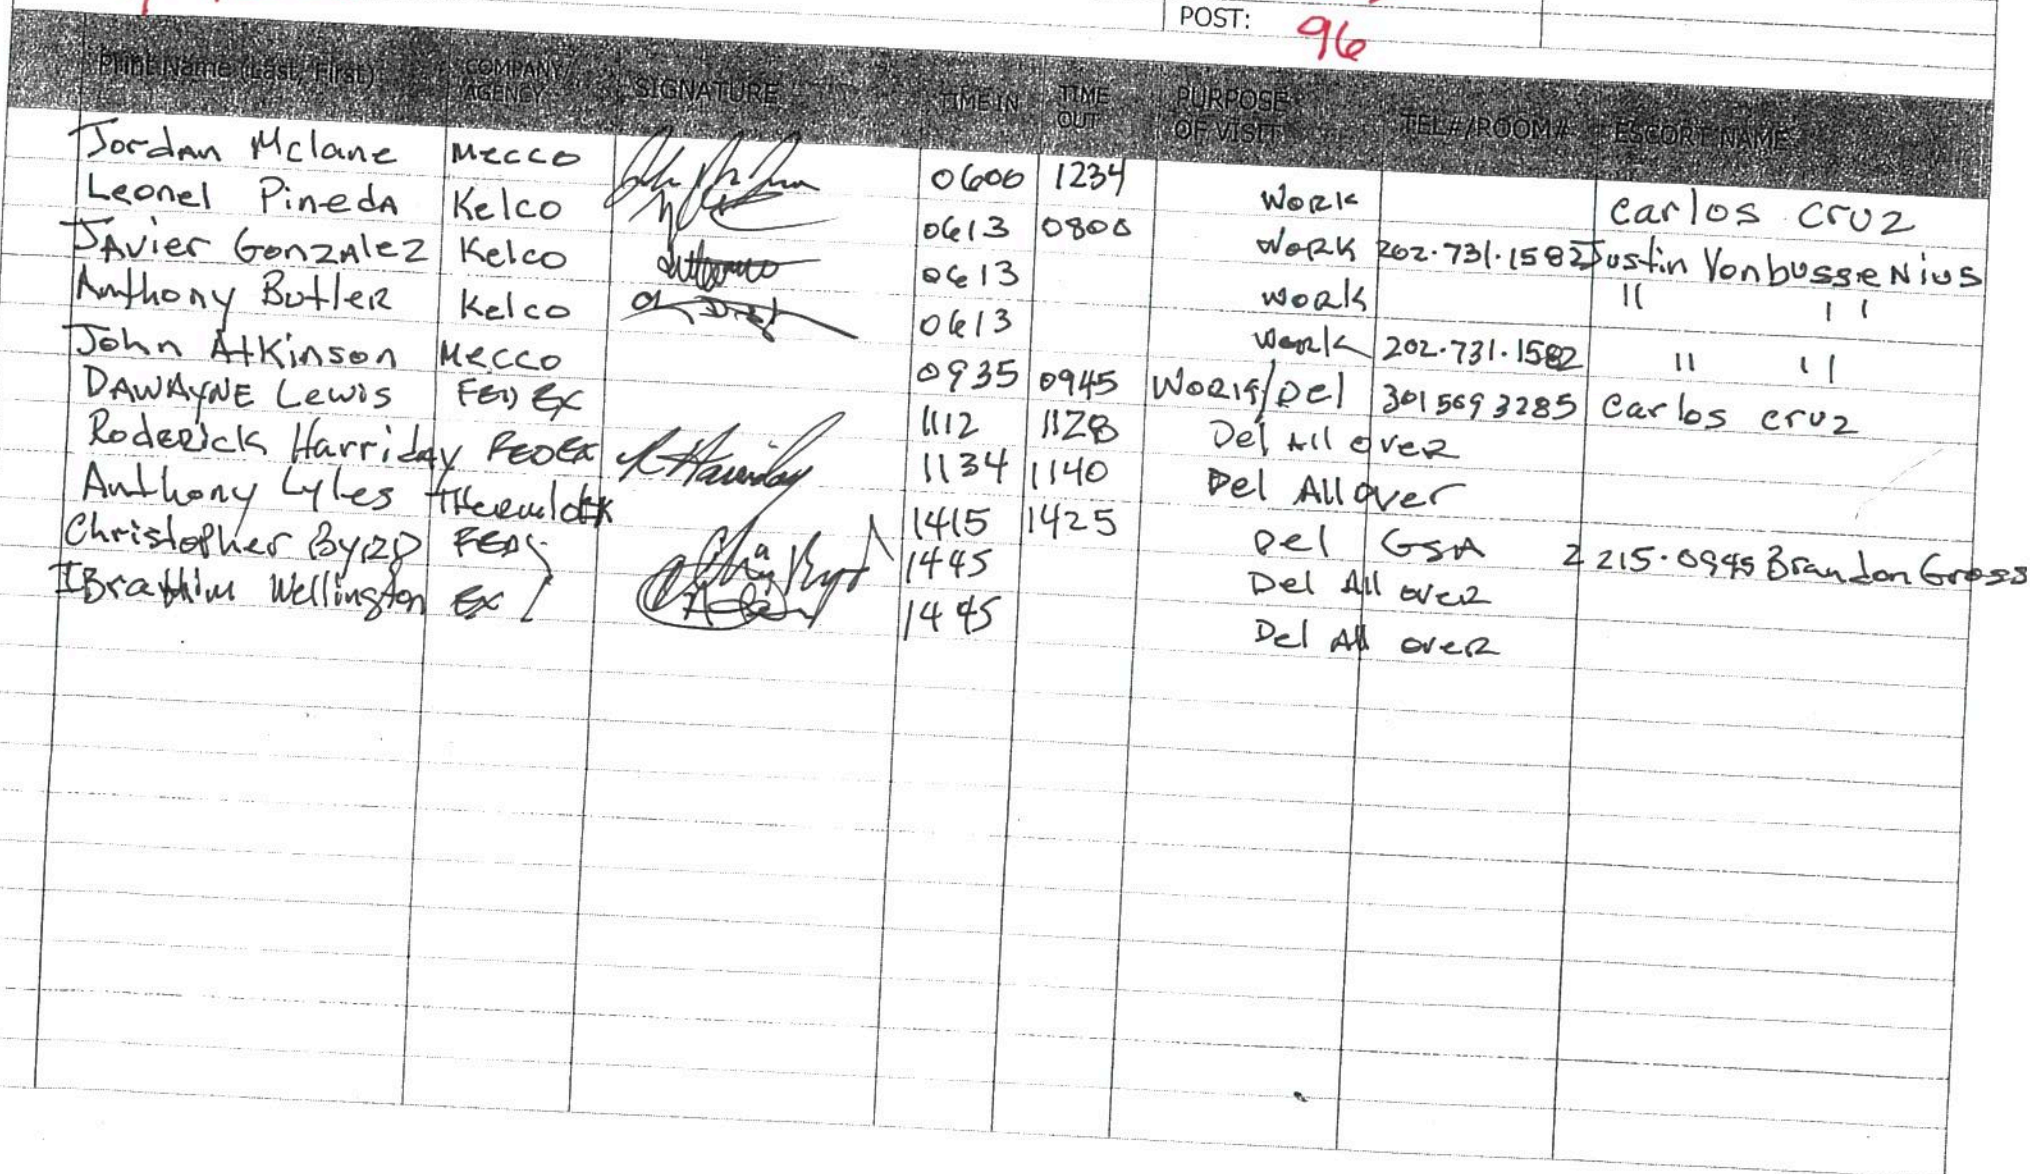 POST: 96
Print Name (Last, First) COMPANY/AGENCY SIGNATURE TIME IN TIME OUT PURPOSE OF VISIT TEL#/ROOM# ESCORT NAME
Jordan Mclane Mecco 0600 1234 Work Carlos Cruz
Leonel Pineda Kelco 0613 0800 Work 202.731.1582 Justin Vonbusse Nius
Javier Gonzalez Kelco 0613 Work " "
Anthony Butler Kelco 0613 Work 202.731.1582 " "
John Atkinson Mecco 0935 0945 Work/Del 3015693285 Carlos Cruz
DAWAYNE Lewis FED Ex 1112 1128 Del All over
Roderick Harriday FEDEx R Harriday 1134 1140 Del All over
Anthony Lyles 1415 1425 Del GSA 2 215.0945 Brandon Gross
Christopher Byrd FED 1445 Del All over
IBrahim Wellington Ex 1445 Del All over